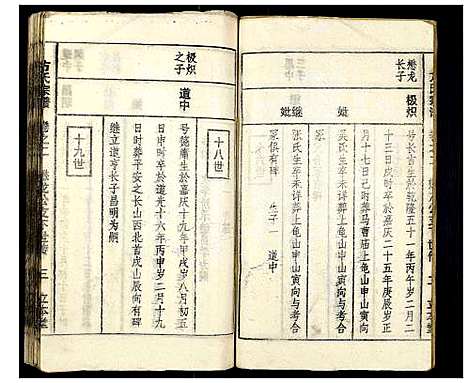 懋龙
长子
极炽
号长吉生於乾隆五十一年丙午岁二月二
十三日戌时卒於嘉庆二十五年庚辰岁正
月十七日己时葬马曹庙上龟山申山寅向
妣
吴氏生卒未详葬上龟山申山寅向与考合
继妣
张氏生卒未详葬上龟山申山寅向与考合
冢俱有碑 生子一 道中
十八世
极炽
之子
道中
号德庸生於嘉庆十九年甲戌岁八月初五
日时卒於道光十六年丙申岁二月十九
日时葬平安之长山西北首戌山辰向有碑
继立道亨长子昌明为嗣
十九世
方氏宗谱
三 立本堂